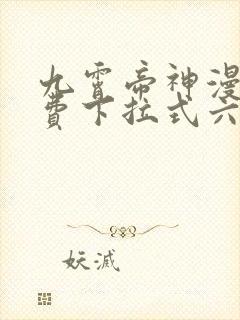 九霄帝神漫
费下拉式六
妖滅